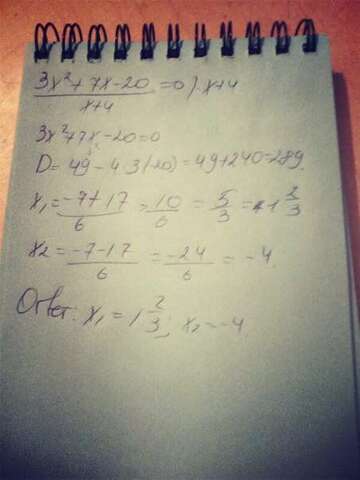 3x²+7x-20/x+4 =0 ) · x+4
3x²+7x-20=0
D=49-4·3(-20)=49+240=289.
x₁=-7+17/6=10/6=5/3=1 2/3
x₂=-7-17/6=-24/6=-4.
Ответ: x₁=1 2/3; x₂=-4